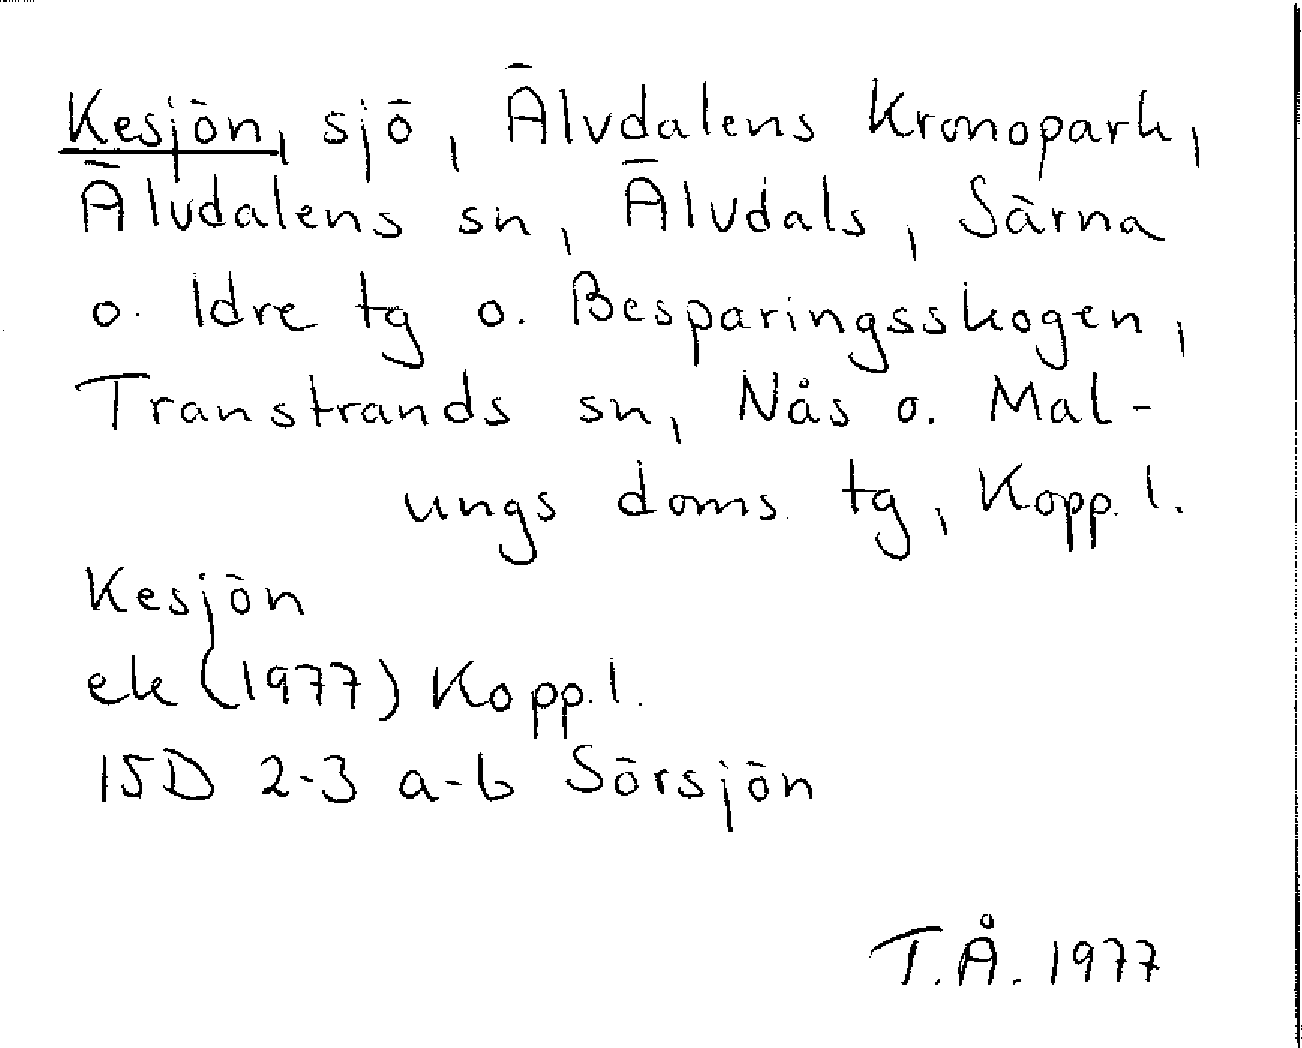 Kesjön, sjö, Älvdalens Kronopark,
Älvdalens sn, Älvdals, Särna
o. Idre tg o. Besparingsskogen,
Transtrands sn, Nås o. Mal-
ungs doms. tg, Kopp. l.
Kesjön
ek (1977) Kopp. l.
15D 2-3 a-b Sörsjön
T.Å. 1977